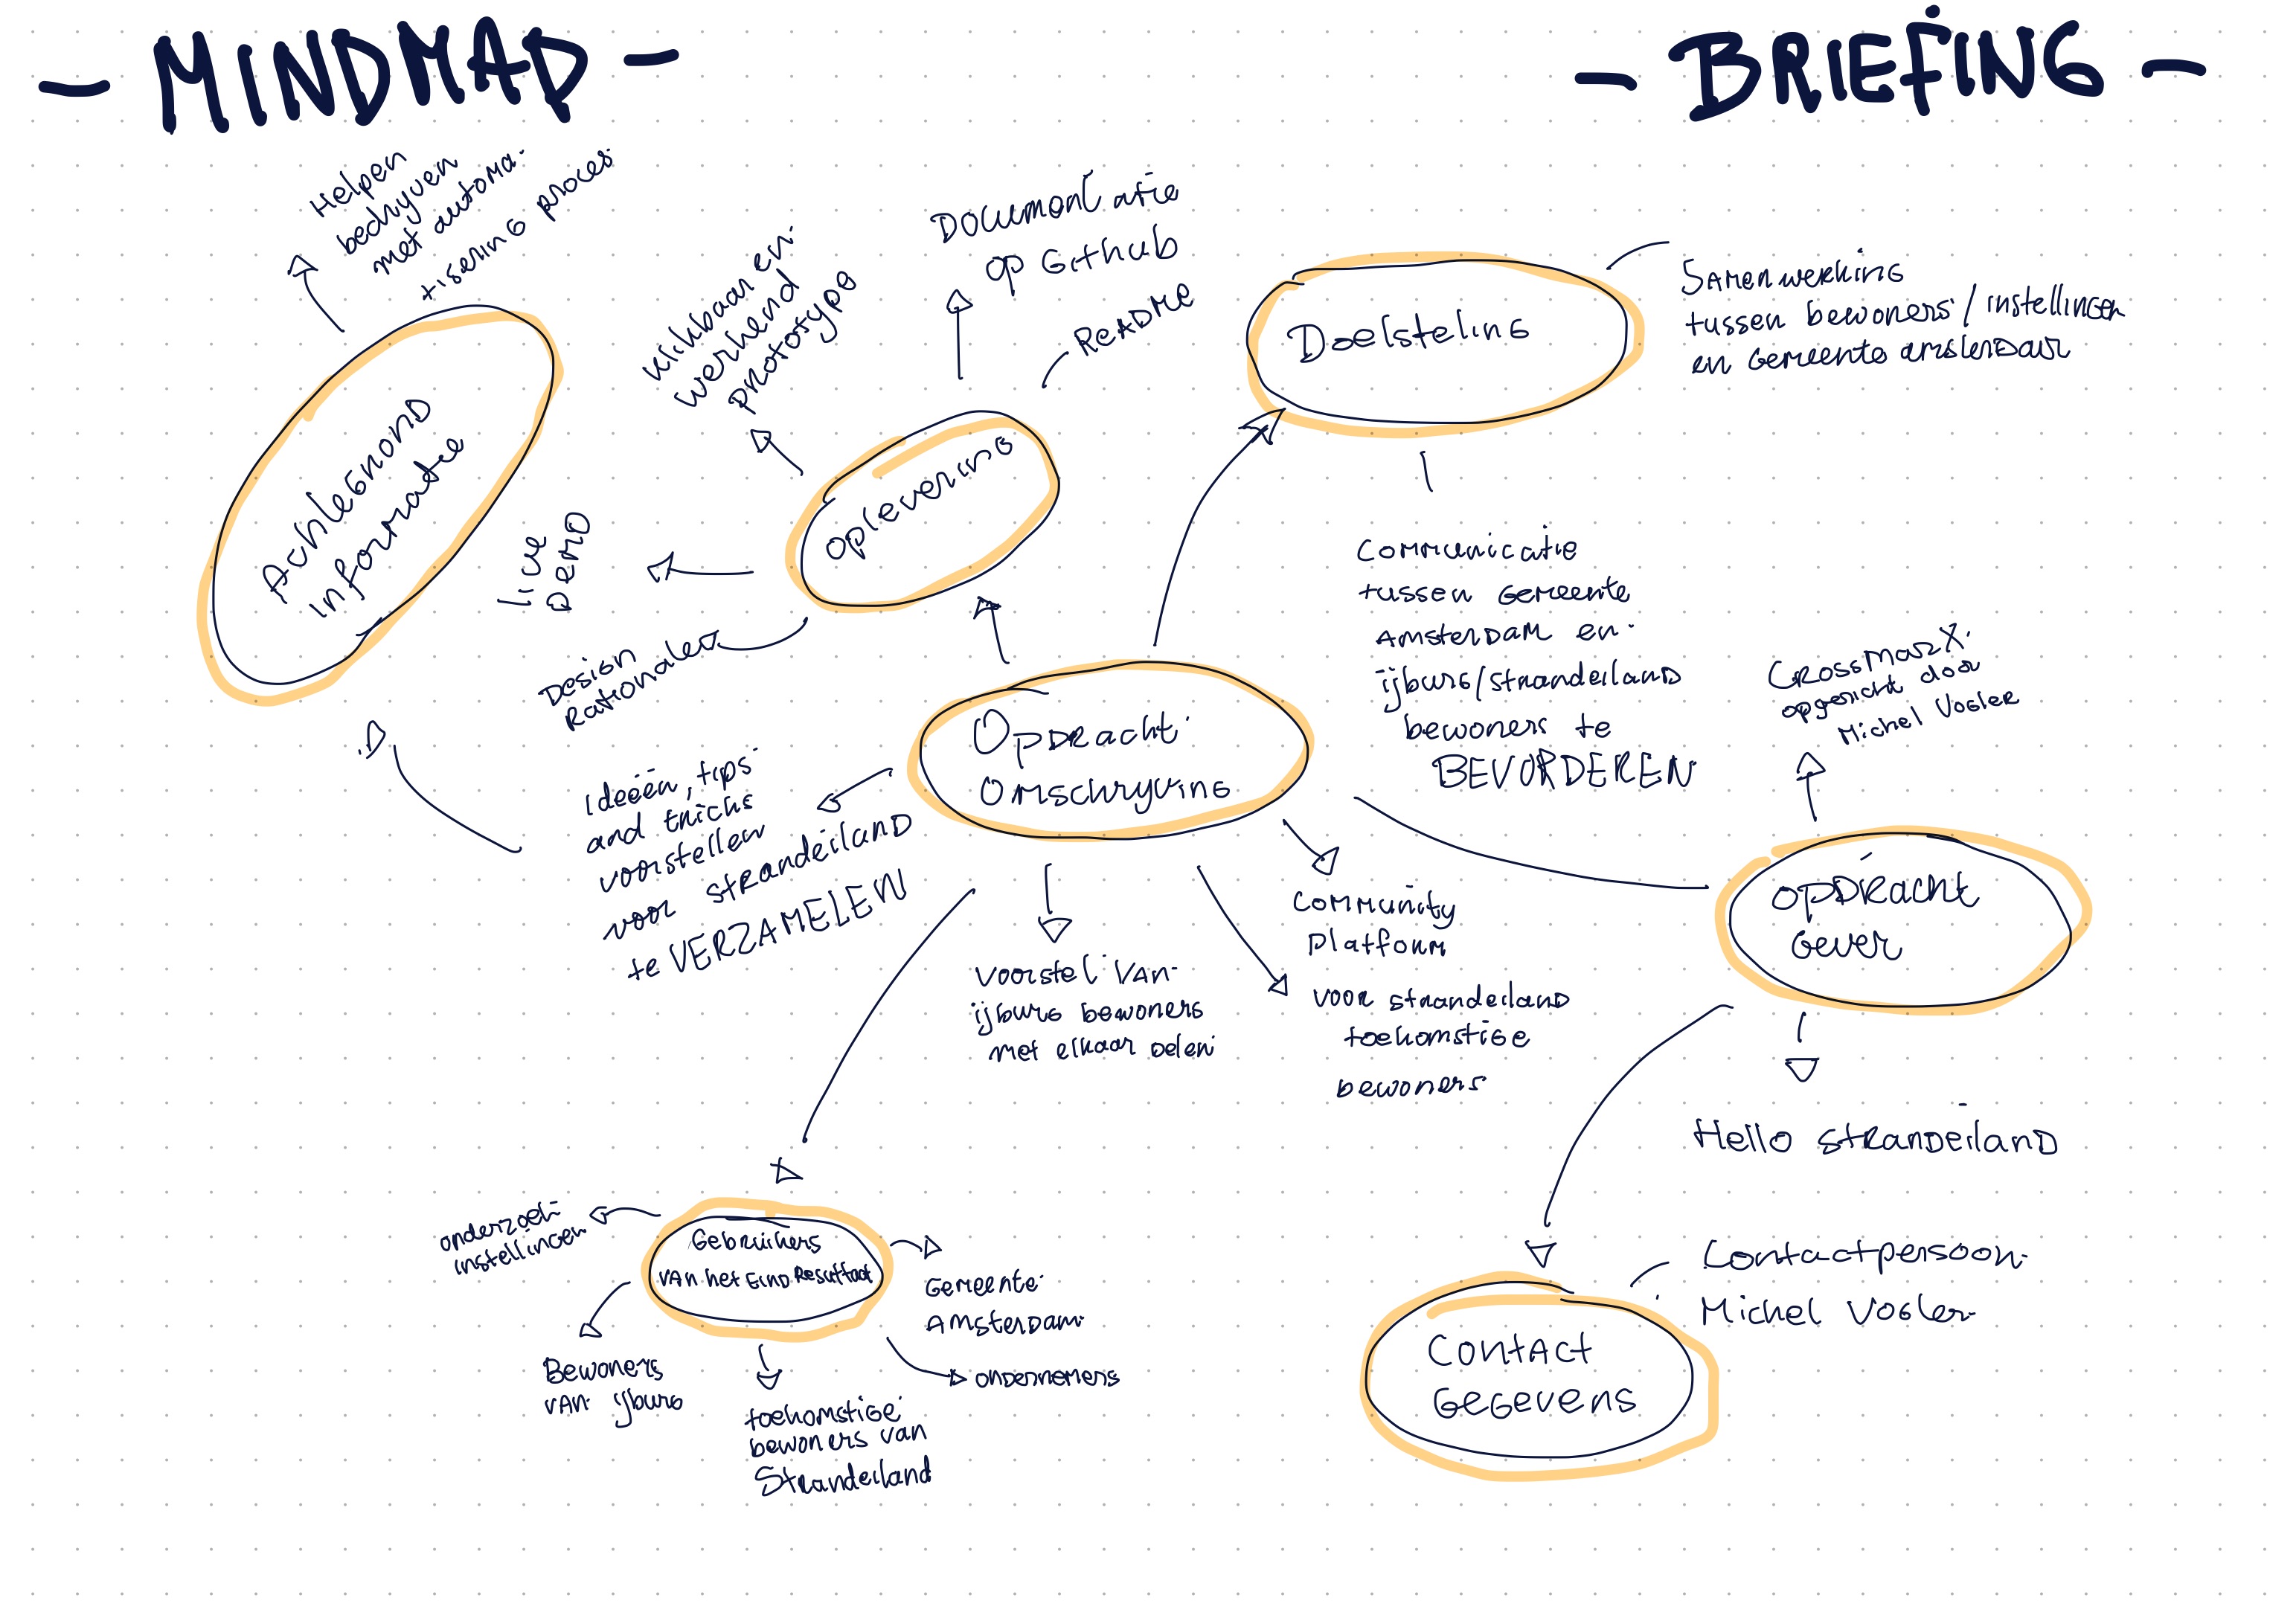 - MINDMAP -
- BRIEFING -
Helpen
bedryven
met automa-
tisering proces
Achtergrond
informatie
klikbaar en
werkend
prototype
Documentatie
op Github
ReadMe
oplevering
live
Demo
Design
Rationale
Doelsteling
Samenwerking
tussen bewoners/instellingen
en Gemeente amsterdam
Communicatie
tussen Gemeente
Amsterdam en
ijburg/strandeiland
bewoners te
BEVORDEREN
Opdracht
Omschryving
Ideeën, tips
and tricks
voorstellen
voor strandeiland
te VERZAMELEN
Voorstel van
ijburg bewoners
met elkaar delen
Community
Platform
voor strandeiland
toekomstige
bewoners
CrossmarX
opgericht door
Michel Vogler
OPDRacht
Gever
Hello strandeiland
Gebruikers
van het Eind Resultaat
onderzoek
instellingen
Bewoners
van ijburg
toekomstige
bewoners van
Strandeiland
Gemeente
Amsterdam
ondernemers
Contact
Gegevens
Contactpersoon
Michel Vogler